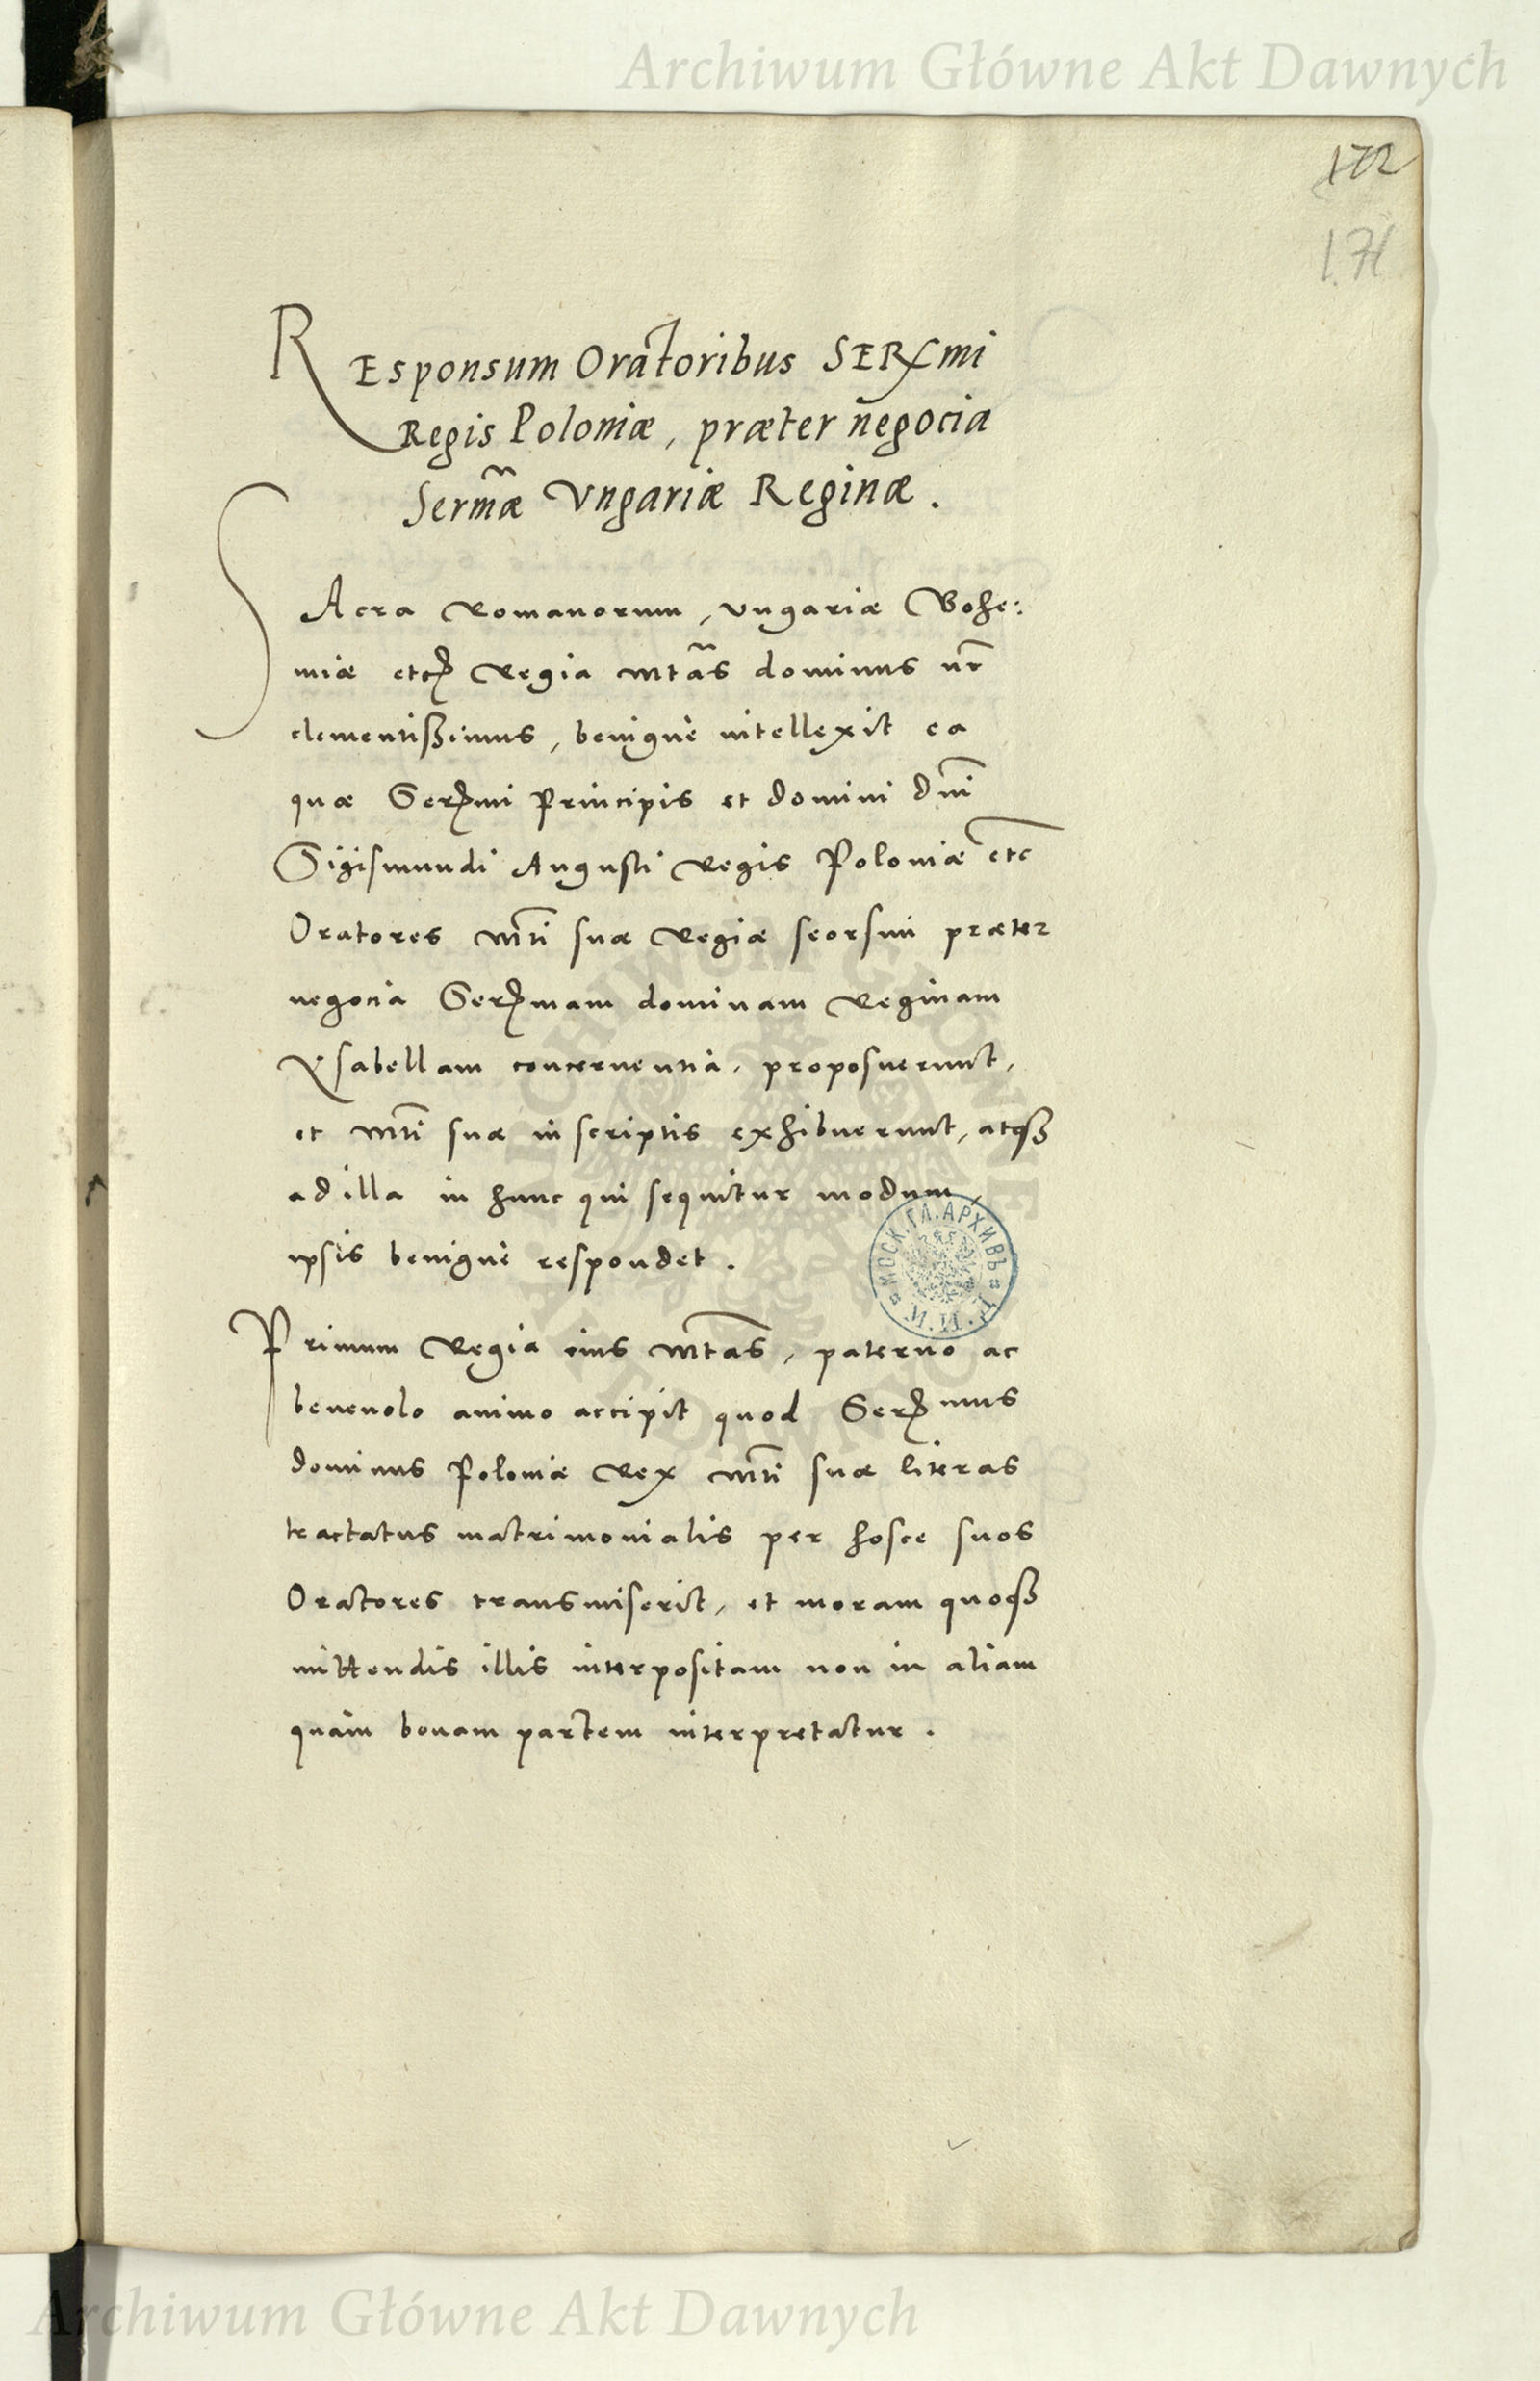 Archiwum Główne Akt Dawnych
172
171
REsponsum Oratoribus SERmi
Regis Poloniæ, præter negocia
Sermæ Ungariæ Reginæ.
SAcra Romanorum, Ungariæ Bohe:
miæ etc Regia Mtas dominus nr
clementißimus, benigne intellexit ea
quæ Sermi Principis et domini dni
Sigismundi Augusti Regis Poloniæ etc
Oratores Mti suæ Regiæ seorsim præter
negocia Sermam dominam Reginam
Ysabellam concernentia, proposuerunt,
et Mti suæ in scriptis exhibuerunt, atqß
ad illa in hunc qui sequitur modum,
ipsis benigne respondet.
МОСК. ГЛ. АРХИВЪ М.И.Д.
Primum Regia eius Mtas, paterno ac
benevolo animo accipit quod Sermus
dominus Poloniæ Rex Mti suæ literas
tractatus matrimonialis per hosce suos
Oratores transmiserit, et moram quoqß
mittendis illis interpositam non in aliam
quàm bonam partem interpretatur.
Archiwum Główne Akt Dawnych